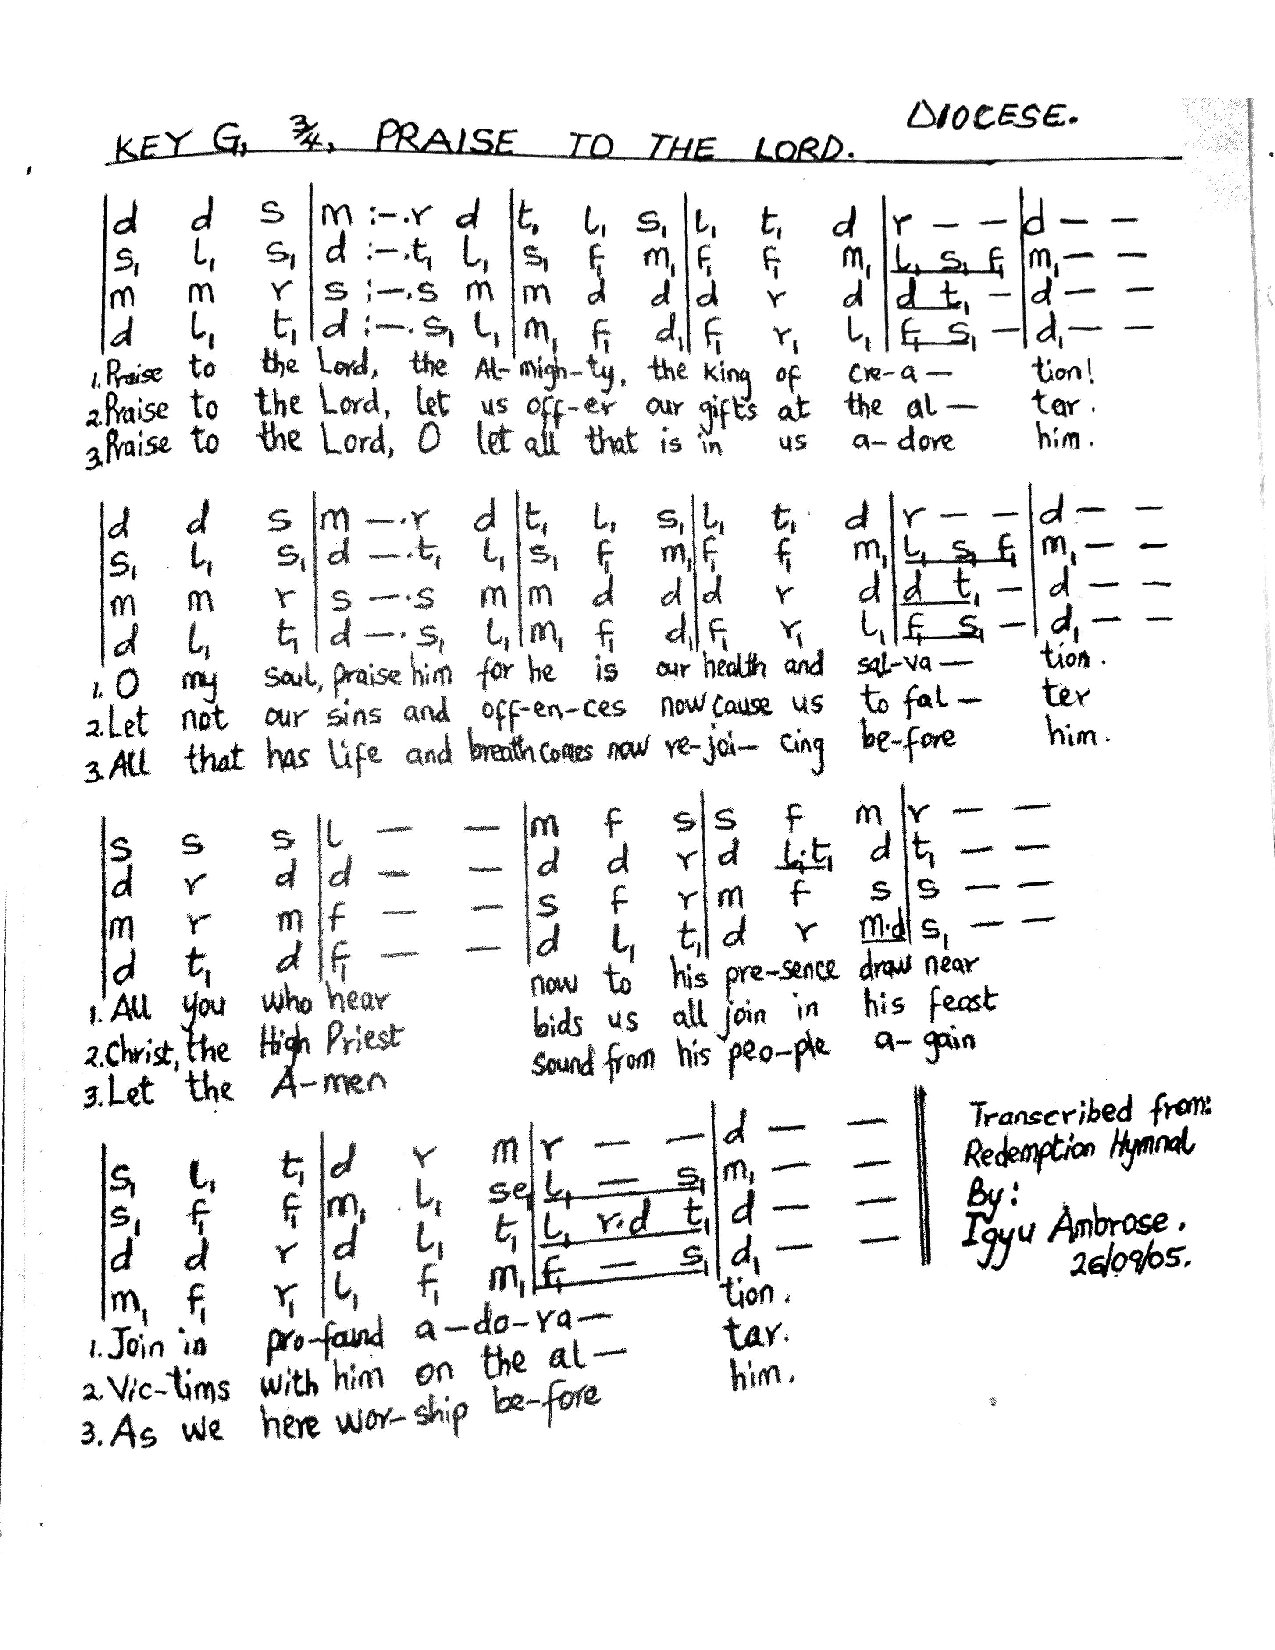 DIOCESE.
KEY G, 3/4, PRAISE TO THE LORD.
|d d s|m :-.r d|t₁ l₁ s₁|l₁ t₁ d|r - -|d - -
|s₁ l₁ s₁|d :-.t₁ l₁|s₁ f₁ m₁|f₁ f₁ m₁|l₁ s₁ f₁|m₁ - -
|m m r|s :-.s m|m d d|d r d|d t₁ -|d - -
|d l₁ t₁|d :-.s₁ l₁|m₁ f₁ d₁|f₁ r₁ l₁|f₁ s₁ -|d₁ - -
1. Praise to the Lord, the Al-migh-ty, the king of cre-a- tion!
2. Praise to the Lord, let us off-er our gifts at the al- tar.
3. Praise to the Lord, O let all that is in us a-dore him.
|d d s|m -.r d|t₁ l₁ s₁|l₁ t₁ d|r - -|d - -
|s₁ l₁ s₁|d -.t₁ l₁|s₁ f₁ m₁|f₁ f₁ m₁|l₁ s₁ f₁|m₁ - -
|m m r|s -.s m|m d d|d r d|d t₁ -|d - -
|d l₁ t₁|d -.s₁ l₁|m₁ f₁ d₁|f₁ r₁ l₁|f₁ s₁ -|d₁ - -
1. O my soul, praise him for he is our health and sal-va- tion.
2. Let not our sins and off-en-ces now cause us to fal- ter
3. All that has life and breath comes now re-joi-cing be-fore him.
|s s s|l - -|m f s|s f m|r - -
|d r d|d - -|d d r|d l₁.t₁ d|t₁ - -
|m r m|f - -|s f r|m f s|s - -
|d t₁ d|f₁ - -|d l₁ t₁|d r m.d|s₁ - -
1. All you who hear now to his pre-sence draw near
2. Christ, the High Priest bids us all join in his feast
3. Let the A-men sound from his peo-ple a-gain
|s₁ l₁ t₁|d r m|r - -|d - -||
|s₁ f₁ f₁|m₁ l₁ se₁|l₁ - s₁|m₁ - -||
|d d r|d l₁ t₁|l₁ r.d t₁|d - -||
|m₁ f₁ r₁|l₁ f₁ m₁|f₁ - s₁|d₁ - -||
1. Join in pro-found a-do-ra- tion.
2. Vic-tims with him on the al- tar.
3. As we here wor-ship be-fore him.
Transcribed from:
Redemption Hymnal
By:
Igyu Ambrose.
26/09/05.